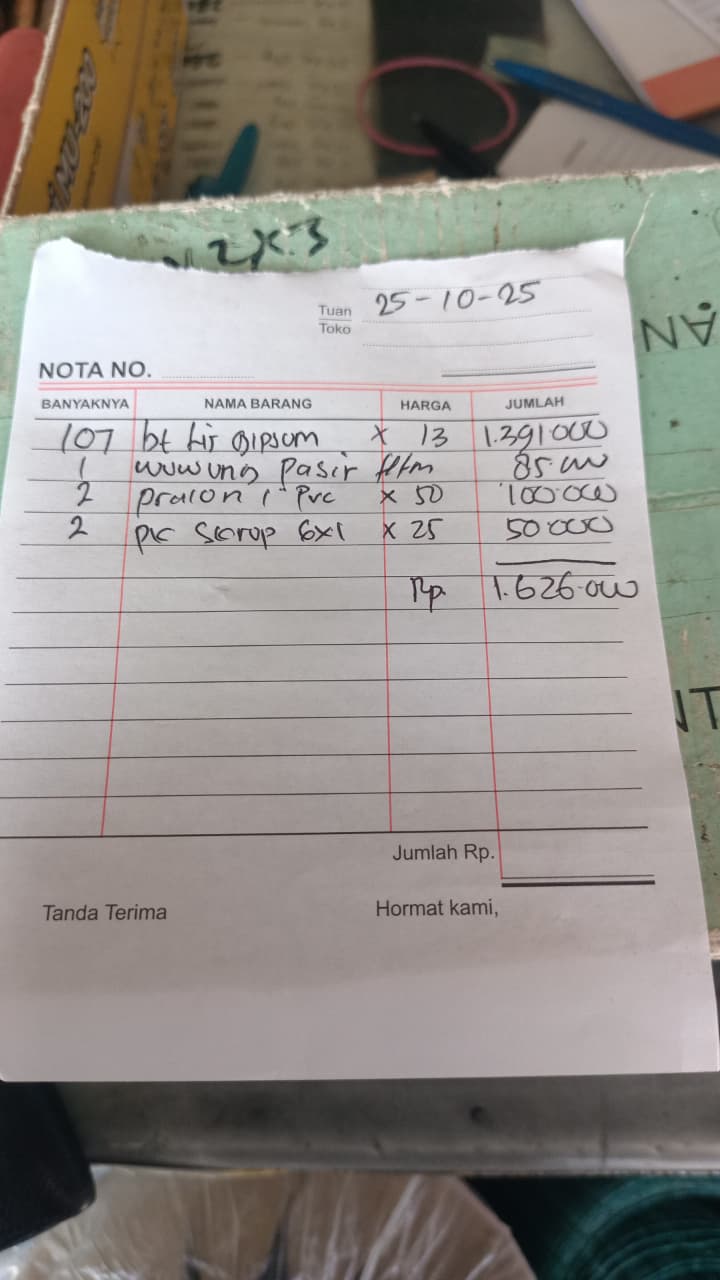 2x3
Tuan
Toko
25-10-25
NOTA NO.
BANYAKNYA NAMA BARANG HARGA JUMLAH
107 bt Lis Gipsum x 13 1.391000
1 wuwung Pasir 85.000
2 pralon 1" PVC x 50 100.000
2 Skrup 6x1 x 25 50.000
Rp. 1.626.000
Jumlah Rp.
Tanda Terima Hormat kami,